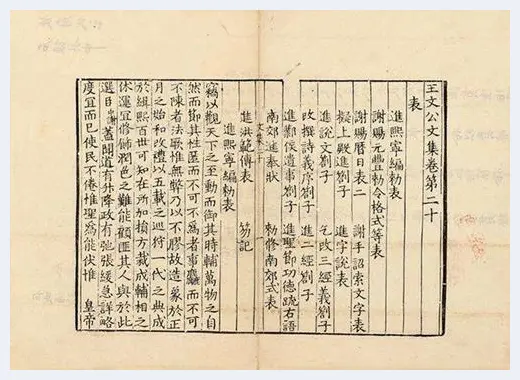 王文公文集卷第二十
表
進熙寧編勑表
謝賜元豐勑令格式等表
謝賜曆日表二 謝手詔索文字表
擬上殿進劄子 進字說表
進說文劄子 乞改三經義劄子
改撰詩義序劄子 進二經劄子
進鄴侯遺事劄子 進聖節功德疏右語
南郊進奉狀 勑修南郊式表
進洪範傳表 笏記
文集二十 一
進熙寧編勑表
竊以觀天下之至動而御其時輔萬物之自
然而節其性匿而不可不為者事麤而不可
不陳者法歟惟無弊乃以不膠故造象於正
月之始和改禮以五載之巡狩一代之典成
於緝熙百世可知在所加損方裁成輔相之
休運宜修飾潤色之難能顧匪其人與於此
選臣謝蓋聞道有升降政有弛張緩急詳略
度宜而已使民不倦惟聖為能伏惟 皇帝